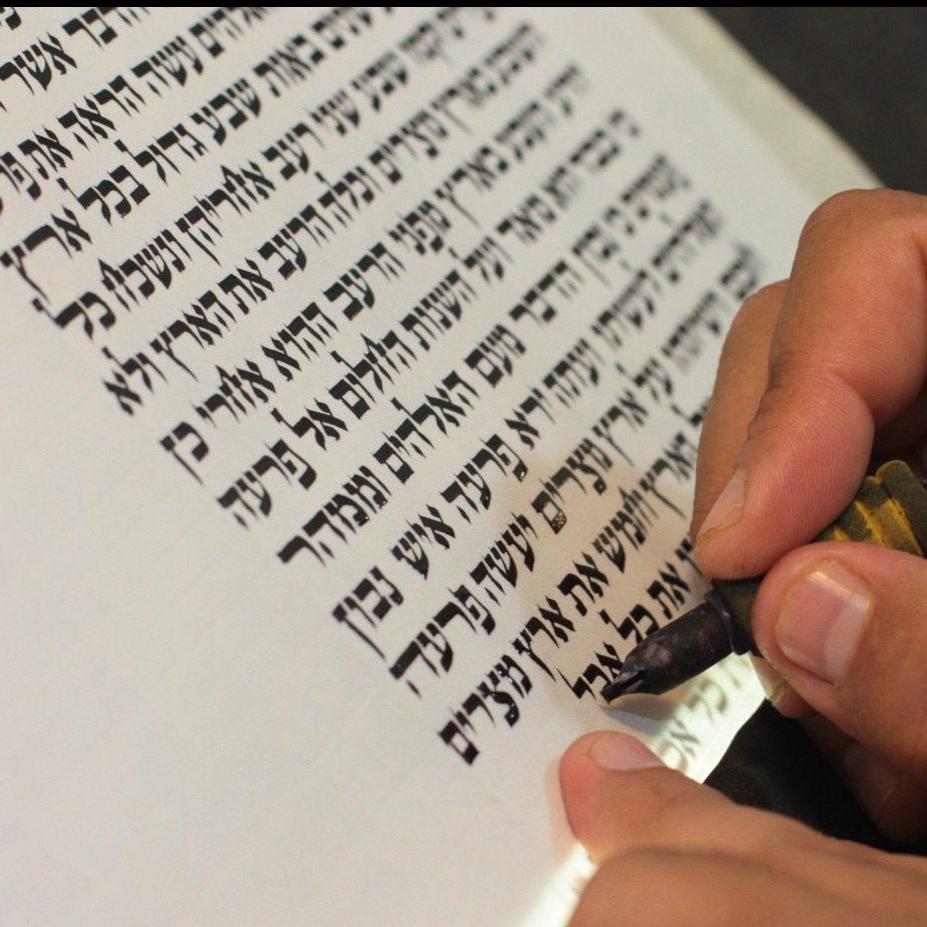 אשר
עשה הראה את
באות שבע גדול בכל ארץ
שבע שני רעב אחריהן ונשכח כל
השבע בארץ מצרים וכלה הרעב את הארץ ולא
השבע בארץ מפני הרעב ההוא אחרי כן
כי כבד הוא מאד ועל השנות החלום אל פרעה
פעמים כי נכון הדבר מעם האלהים וממהר
האלהים לעשתו ועתה ירא פרעה איש נבון
וחכם וישיתהו על ארץ מצרים יעשה פרעה
וחמש את ארץ מצרים
את כל אכל